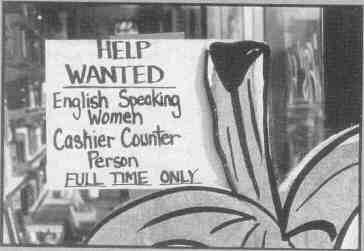 HELP
WANTED
English Speaking
Women
Cashier Counter
Person
FULL TIME ONLY